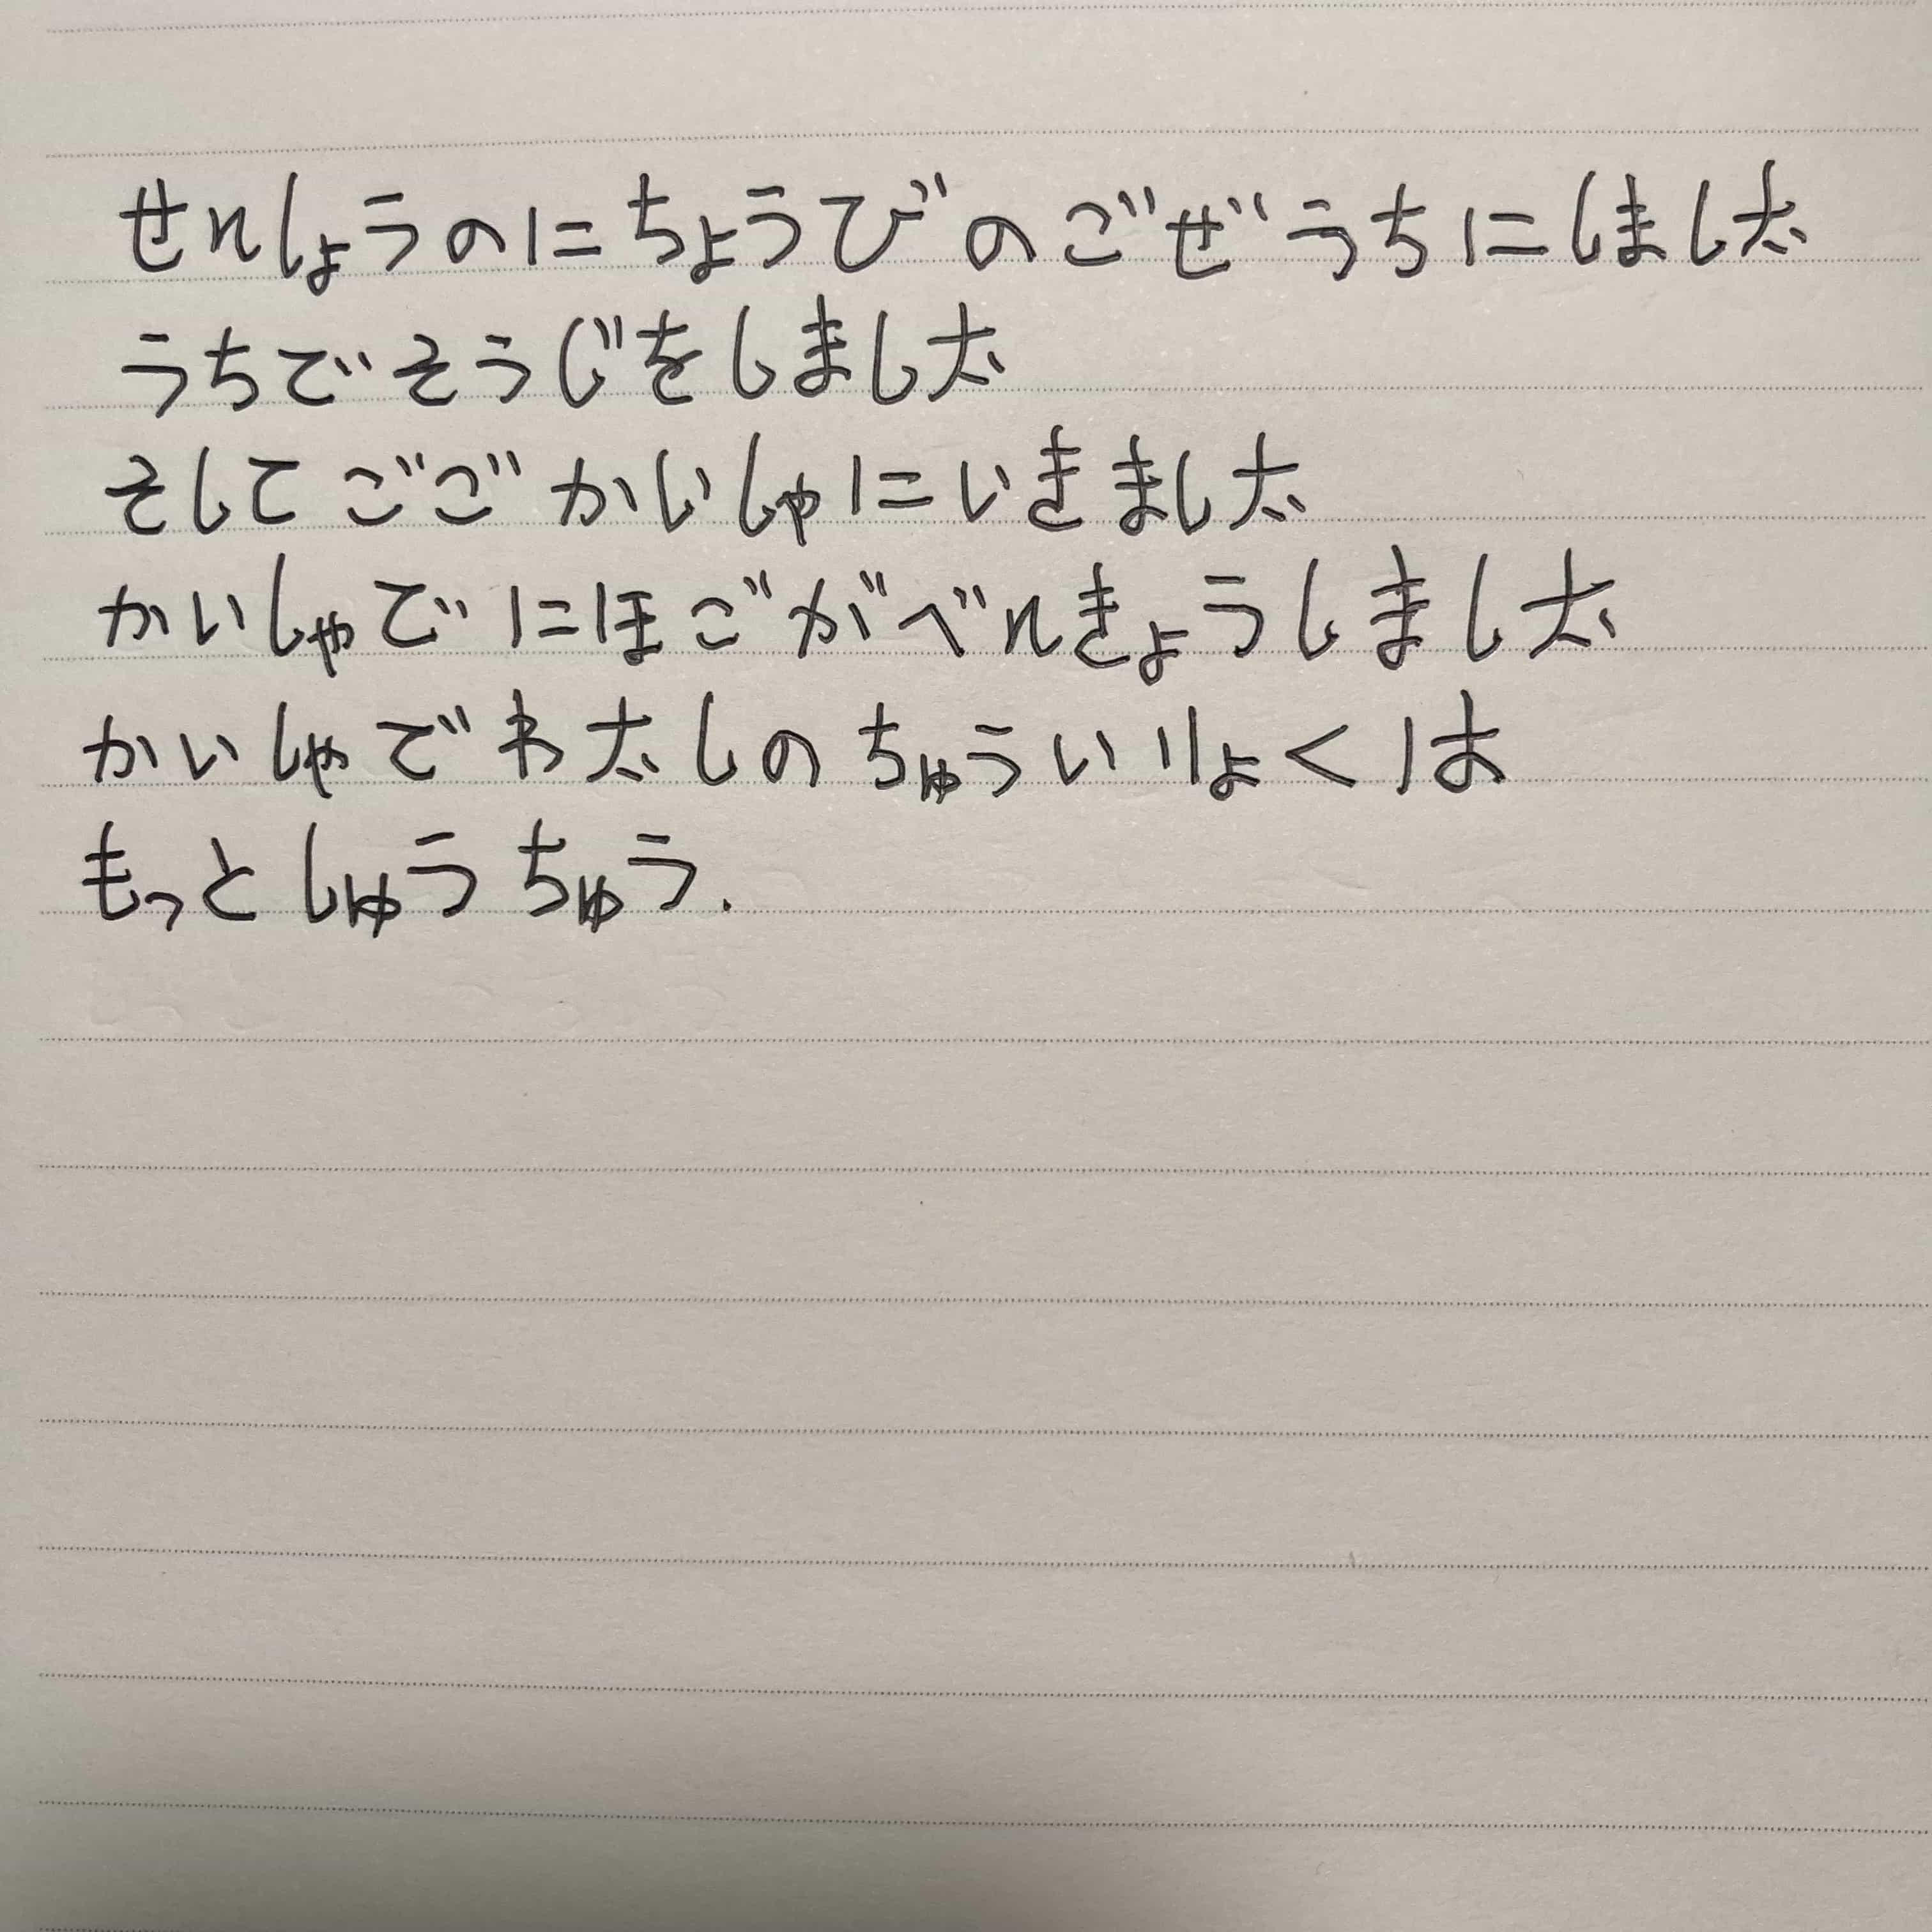 せんしょうのにちょうびのごぜうちにしました
うちでそうじをしました
そしてごごかいしゃにいきました
かいしゃでにほごがべんきょうしました
かいしゃでわたしのちゅういりょくは
もっとしゅうちゅう.